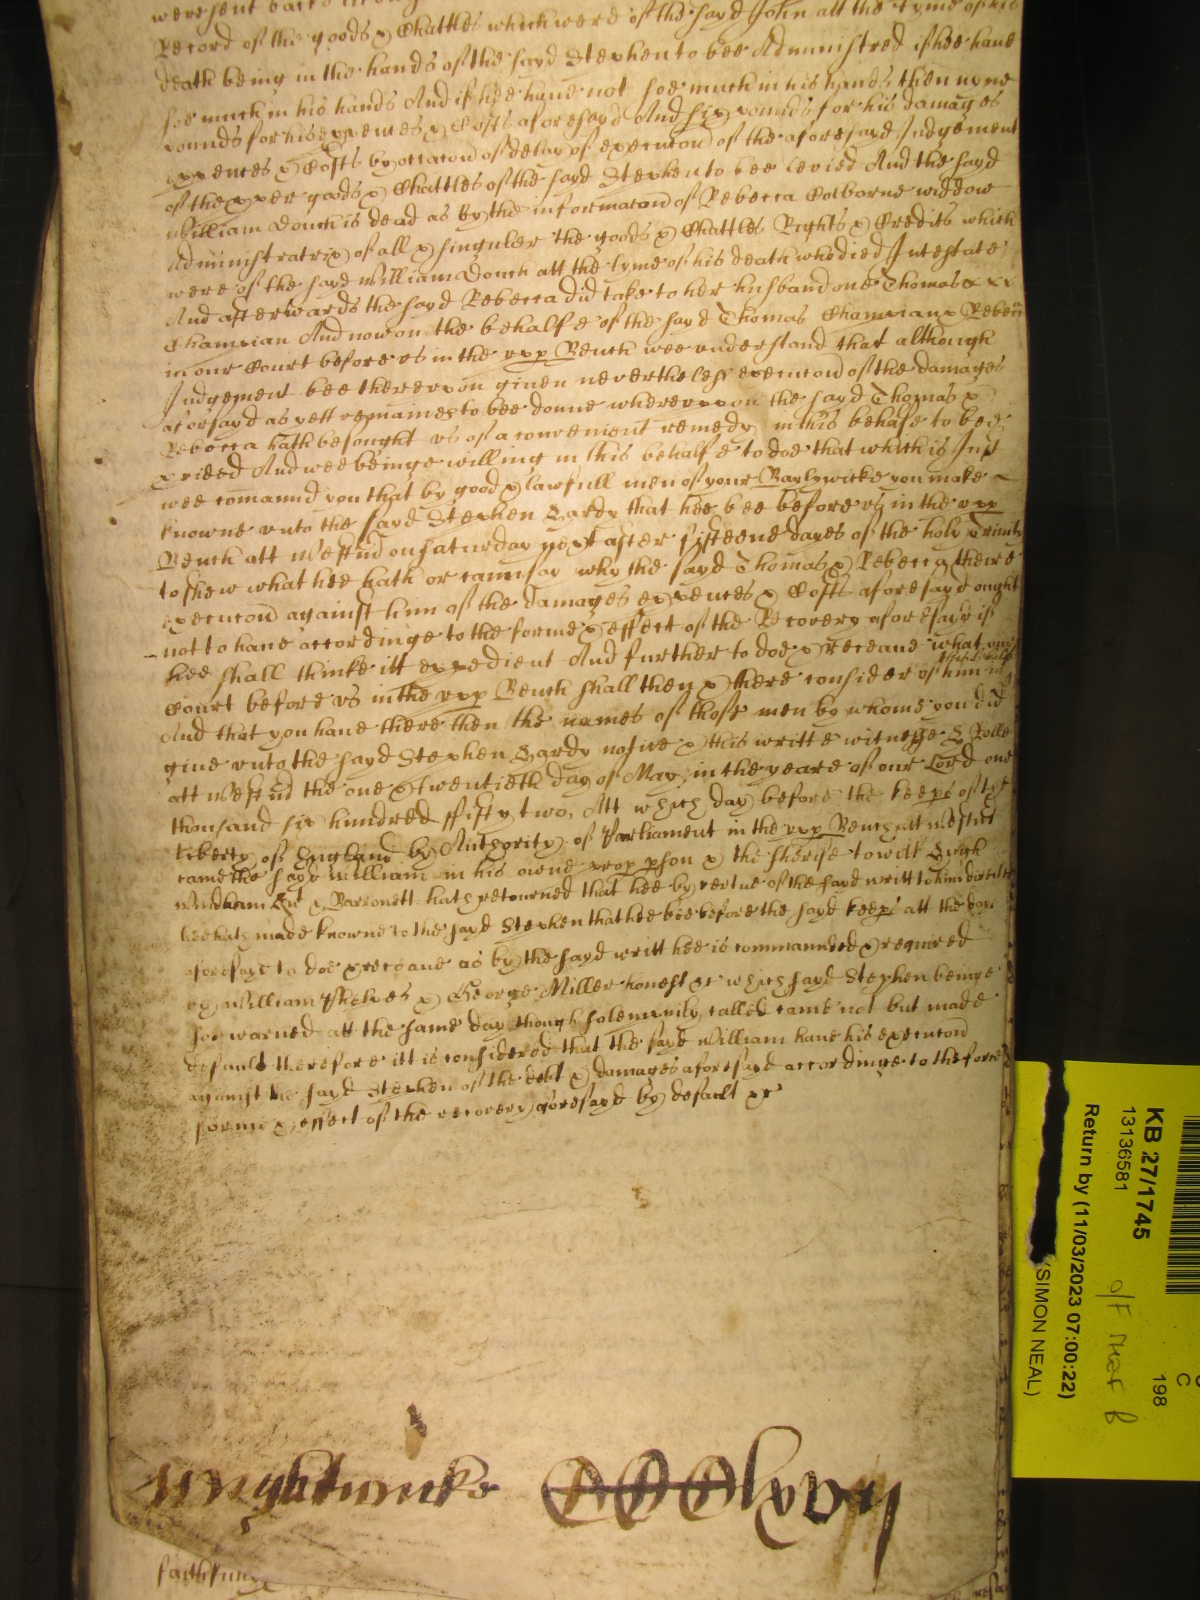 Record of the goods & Chattles which were of the sayd John att the tyme of his
death being in the hands of the sayd Stephen to bee Administred if hee have
soe much in his hands And if hee have not soe much in his hands then nyne
pounds for his expences & Costs aforesayd And six pounds for his damages
expences & Costs by occacon of delay of execucon of the aforesayd Judgement
of the pper goods & Chattles of the sayd Stephen to bee levied And the sayd
William Douch is dead as by the informacon of Rebecca Colborne widdow
Administratrix of all & singuler the goods & Chattles Rights & Credits which
were of the sayd William Douch att the tyme of his death who died Intestate
And afterwards the sayd Rebecca did take to her husband one Thomas
Champian And now on the behalfe of the sayd Thomas Champian & Rebecca
in our Court before us in the upp Bench wee understand that although
Judgement bee thereupon given neverthelesse execucon of the damages
aforsayd as yett remaines to bee donne whereuppon the sayd Thomas &
Rebecca hath besought us of a convenient remedy in this behalfe to bee
pvided And wee beinge willing in this behalfe to doe that which is Just
wee comannd you that by good & lawfull men of your Baylywicke you make
knowne unto the sayd Stephen Hardy that hee bee before us in the upp
Bench att Westmd on Saturday next after fifteene dayes of the holy Trinity
to shew what hee hath or cann say why the sayd Thomas & Rebecca theire
execucon against him of the damages expences & Costs aforesayd ought
not to have accordinge to the forme & effect of the Recovery aforesayd if
hee shall thinke itt expedient And further to doe & receave what our
Court before us in the upp Bench shall then & there consider of him in this behalfe
And that you have there then the names of those men by whome you did
give unto the sayd Stephen Hardy notice & this writt witnesse H Rolle
att Westmd the one & twentieth day of May in the yeare of our Lord one
thousand six hundred ffifty two, Att which day before the keeps of the
liberty of England by Authority of Parliament in the upp Bench att Westmr
came the sayd William in his owne prop pson & the sherife to witt Hugh
Windham knt & Barronett hath retourned that hee by vertue of the sayd writt to him directed
hee hath made knowne to the sayd Stephen that hee bee before the sayd keeps att the day
aforesayd to doe & receave as by the sayd writt hee is commannded & required
by William Phelpes & George Miller honest &c which sayd Stephen beinge
soe warned att the same day though solemnily called came not but made
default therefore itt is considered that the sayd William have his execucon
against the sayd Stephen of the debt & damages aforesayd accordinge to the force
forme & effect of the recovery aforesayd by default &c
Wrightwicke CCCClxvij
KB 27/1745
13136581
Return by (11/03/2023 07:00:22)
(SIMON NEAL)
198
C